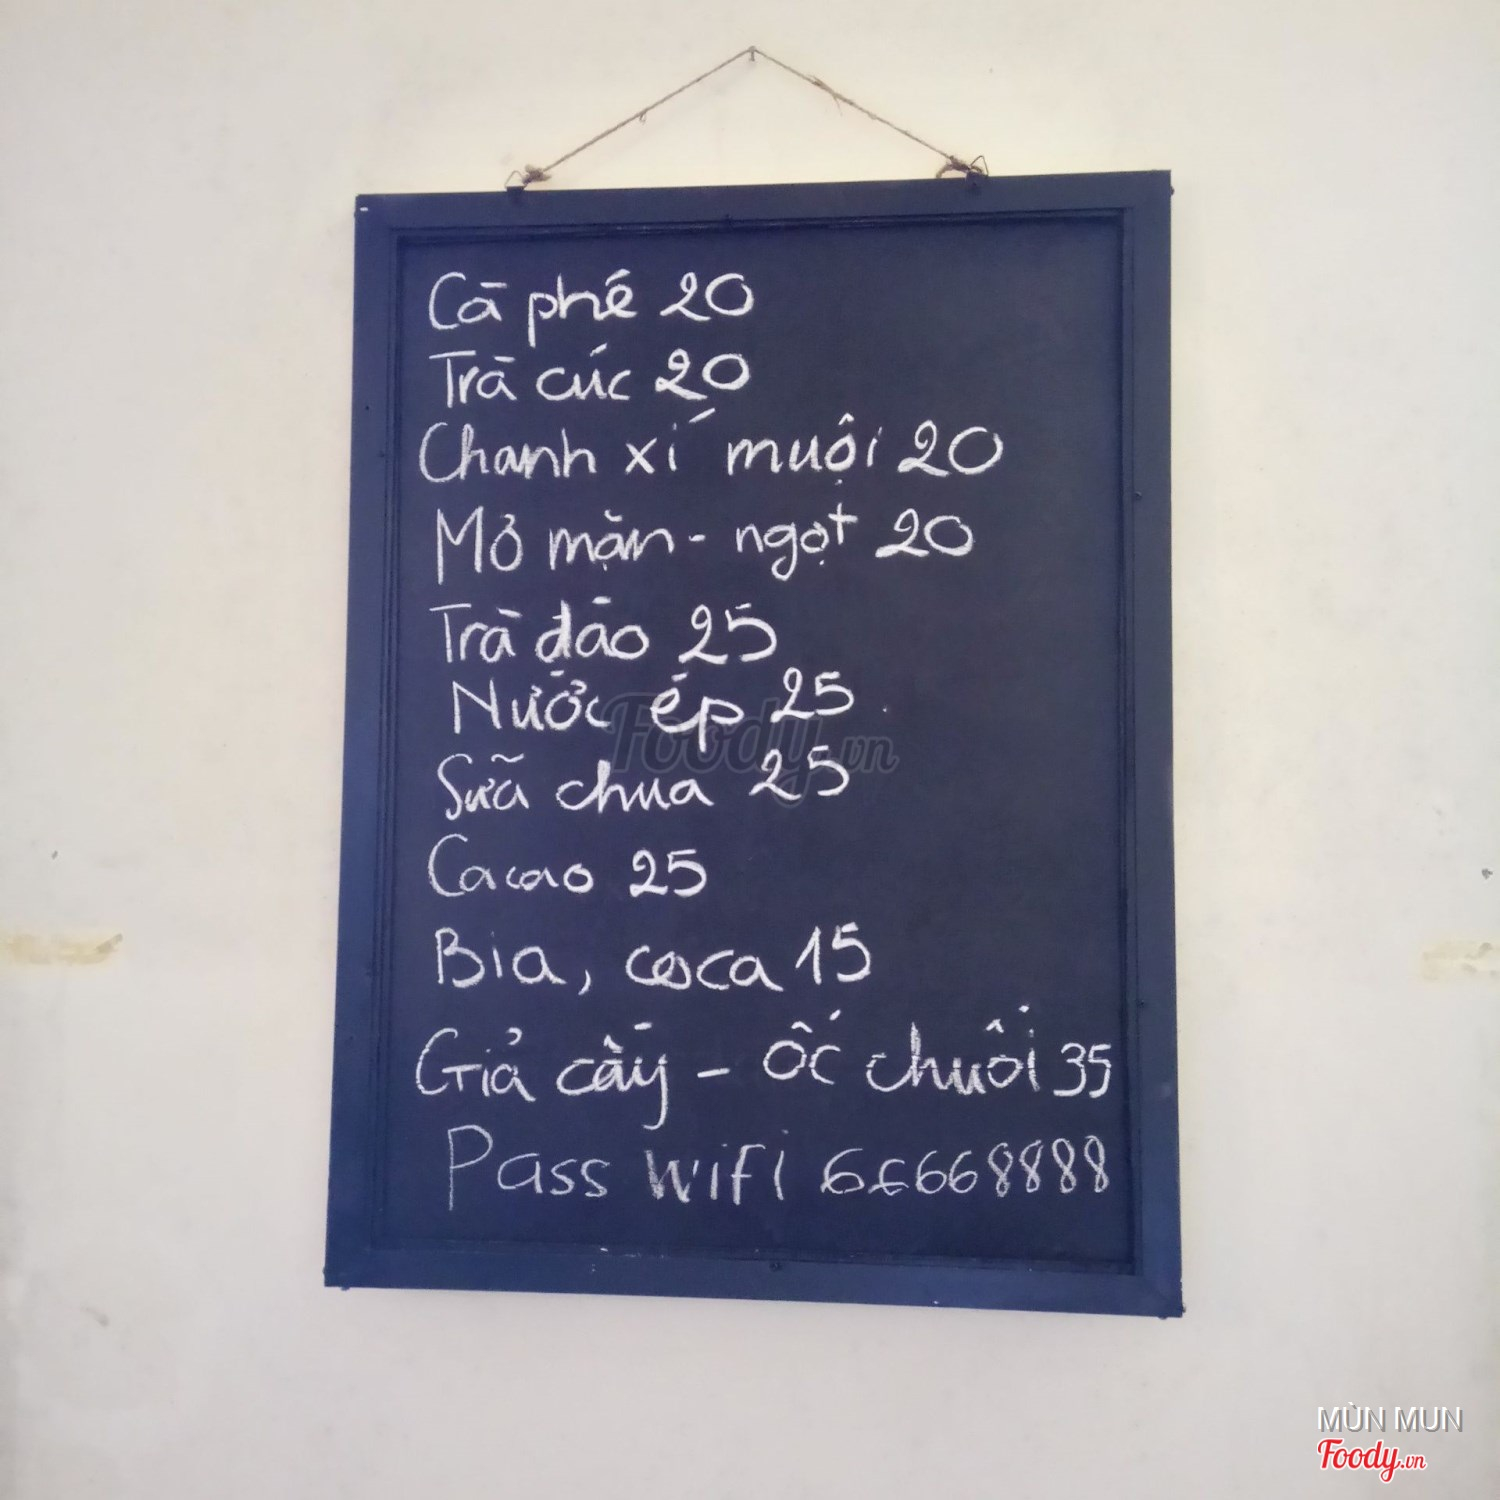 Cà phê 20
Trà cúc 20
Chanh xí muội 20
Mơ mặn - ngọt 20
Trà đào 25
Nước ép 25
Sữa chua 25
Cacao 25
Bia, coca 15
Giả cầy - ốc chuối 35
Pass wifi 66668888
Foody.vn
MÙN MUN
Foody.vn